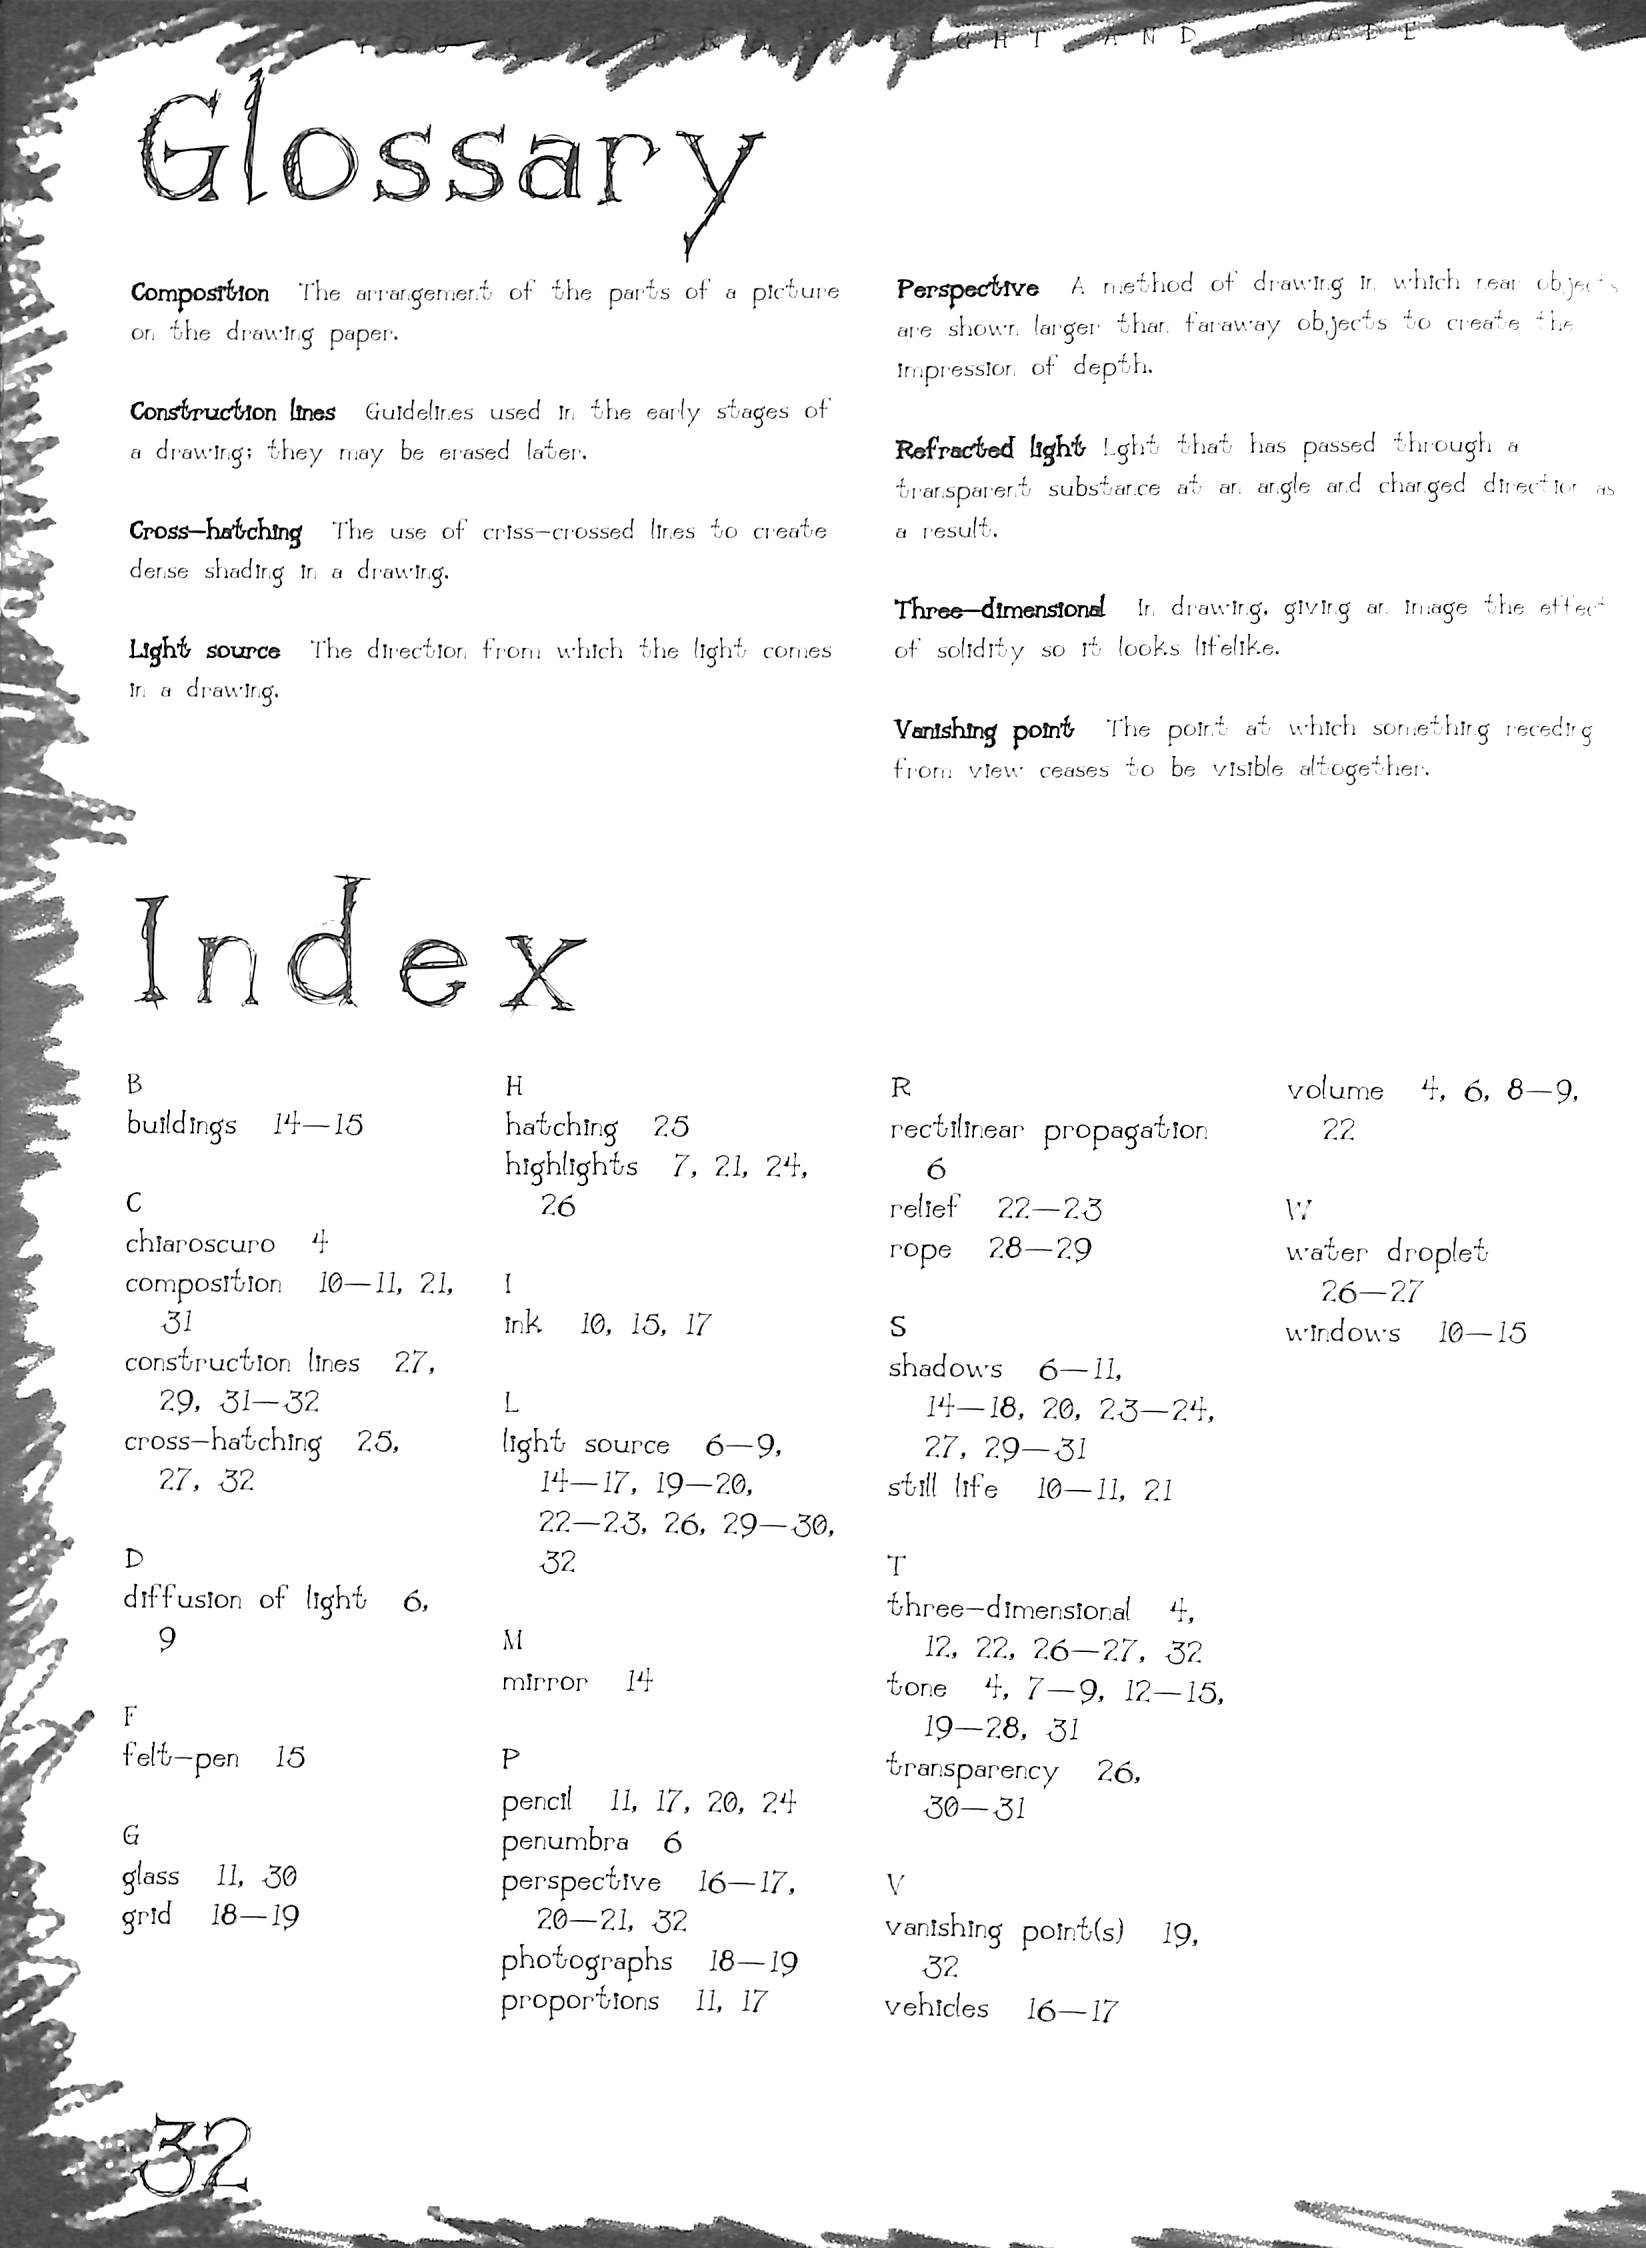 YOU CAN DRAW LIGHT AND SHADE
Glossary
Composition The arrangement of the parts of a picture
on the drawing paper.
Construction lines Guidelines used in the early stages of
a drawing; they may be erased later.
Cross-hatching The use of criss-crossed lines to create
dense shading in a drawing.
Light source The direction from which the light comes
in a drawing.
Perspective A method of drawing in which near objects
are shown larger than faraway objects to create the
impression of depth.
Refracted light Lght that has passed through a
transparent substance at an angle and changed direction as
a result.
Three-dimensional In drawing, giving an image the effect
of solidity so it looks lifelike.
Vanishing point The point at which something receding
from view ceases to be visible altogether.
Index
B
buildings 14—15
C
chiaroscuro 4
composition 10—11, 21,
31
construction lines 27,
29, 31—32
cross-hatching 25,
27, 32
D
diffusion of light 6,
9
F
felt-pen 15
G
glass 11, 30
grid 18—19
H
hatching 25
highlights 7, 21, 24,
26
I
ink 10, 15, 17
L
light source 6—9,
14—17, 19—20,
22—23, 26, 29—30,
32
M
mirror 14
P
pencil 11, 17, 20, 24
penumbra 6
perspective 16—17,
20—21, 32
photographs 18—19
proportions 11, 17
R
rectilinear propagation
6
relief 22—23
rope 28—29
S
shadows 6—11,
14—18, 20, 23—24,
27, 29—31
still life 10—11, 21
T
three-dimensional 4,
12, 22, 26—27, 32
tone 4, 7—9, 12—15,
19—28, 31
transparency 26,
30—31
V
vanishing point(s) 19,
32
vehicles 16—17
volume 4, 6, 8—9,
22
W
water droplet
26—27
windows 10—15
32